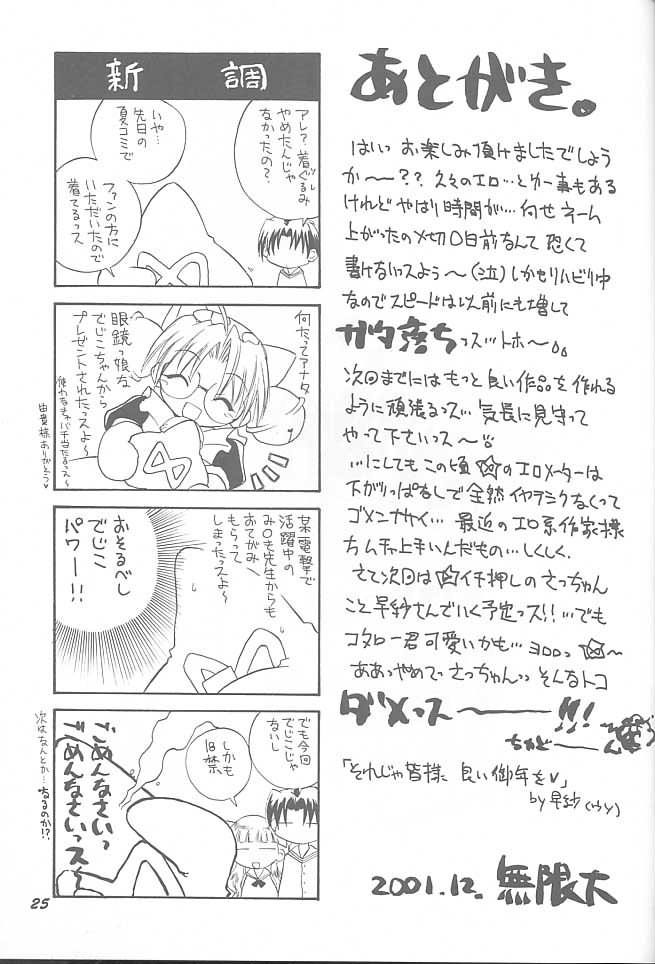 あとがき。
はいっ お楽しみ頂けましたでしょう
か〜〜?? 久々のエロ…とゆー事もある
けれど やはり時間が… 何せネーム
上がったの〆切〇日前なんて 恐くて
書けないっスよう〜(泣) しかもリハビリ中
なのでスピードは以前にも増して
ガタ落ちっス…トホ〜
次回までにはもっと良い作品を作れる
ように頑張るっス… 気長に見守って
やって下さいっス〜
…にしてもこの頃 のエロメーターは
下がりっぱなしで全然イヤラシクなくって
ゴメンナサイ… 最近のエロ系作家様
ムチャ上手いんだもの…しくしく。
さて次回は イチ押しのさっちゃん
こと早紗さんでいく予定っス!! …でも
コタロー君可愛いかも… ヨロロっ 〜
ああっやめてっ さっちゃんっ そんなトコ
ダメっス〜〜!!!
ちゃど〜〜ん
「それじゃ皆様、良い御年を♡」
by 早紗(ウソ)
2001.12. 無限大
新調
アレ? 着ぐるみ
やめたんじゃ
なかったの?
いや…
先日の
夏コミで
ファンの方に
いただいたので
着てるっス
何たってアナタ、
眼鏡っ娘な
でじこちゃんから
プレゼントされたっスよ〜
使わなきゃバチ当たるっス〜
由貴様ありがとう♡
某電撃で
活躍中の
み〇も先生からも
おてがみ
もらって
しまったっスよ〜
おそるべし
でじこ
パワー!!
でも今回
でじこじゃ
ないし
しかも
18禁
ごめんなさいっ
ごめんなさいっス
次はなんとか…なるのか!?
25